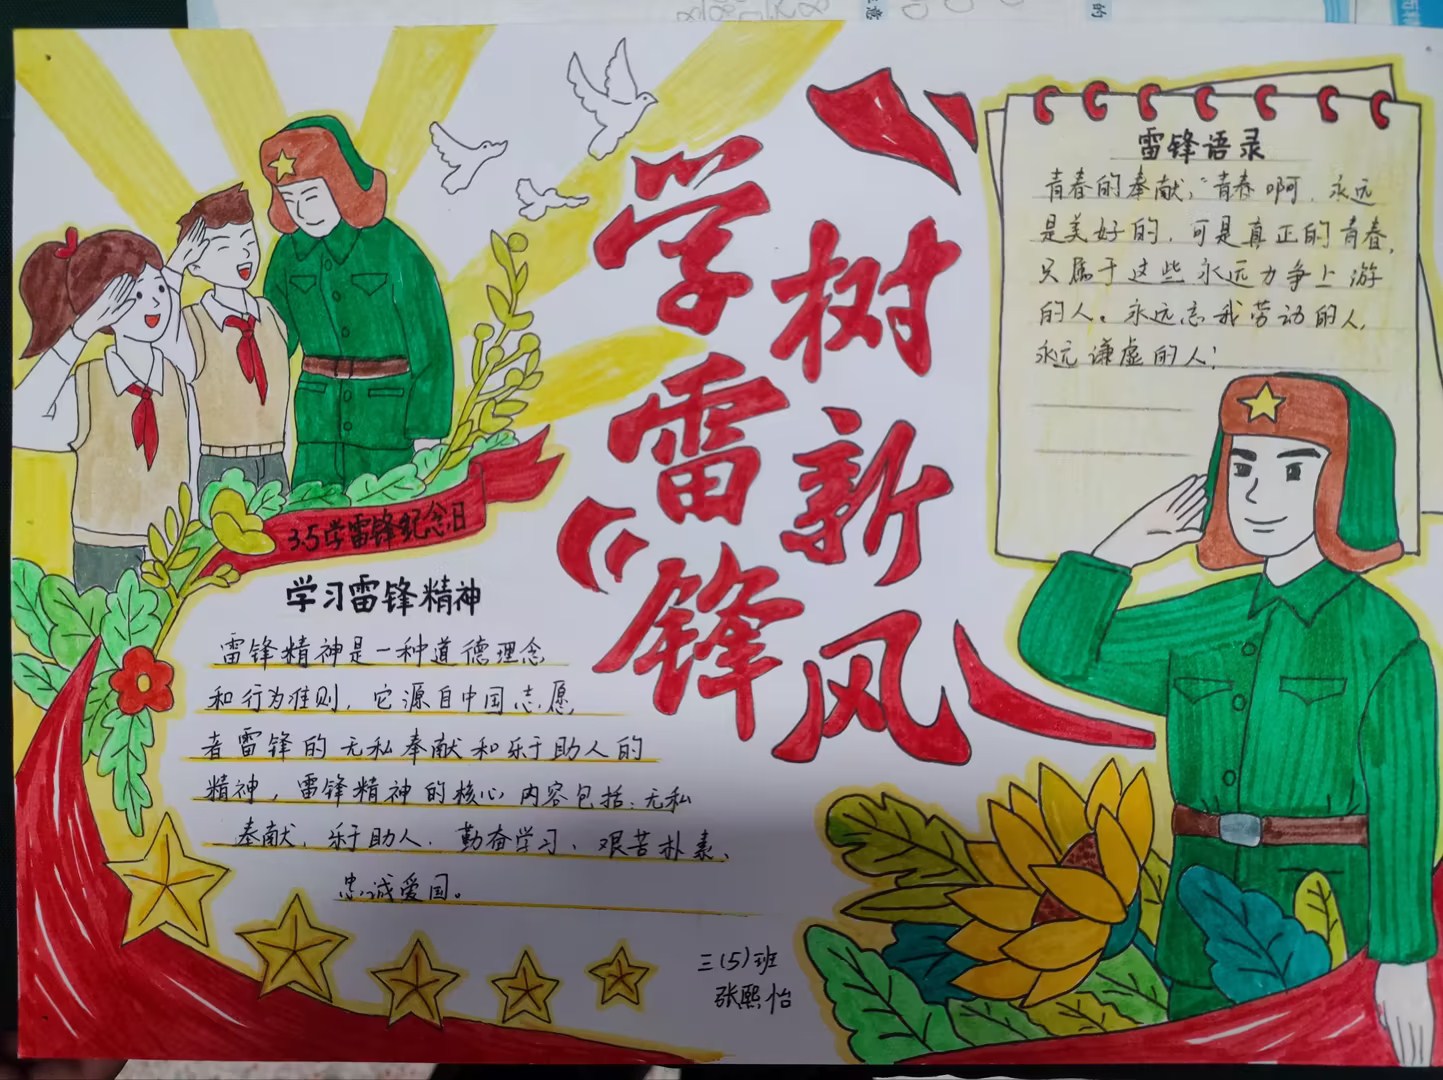 学雷锋
树新风
雷锋语录
青春的奉献，“青春啊，永远
是美好的，可是真正的青春，
只属于这些永远力争上游
的人。永远忘我劳动的人，
永远谦虚的人！
3.5学雷锋纪念日
学习雷锋精神
雷锋精神是一种道德理念
和行为准则，它源自中国志愿
者雷锋的无私奉献和乐于助人的
精神，雷锋精神的核心内容包括：无私
奉献、乐于助人、勤奋学习、艰苦朴素、
忠诚爱国。
三（5）班
张熙怡
的